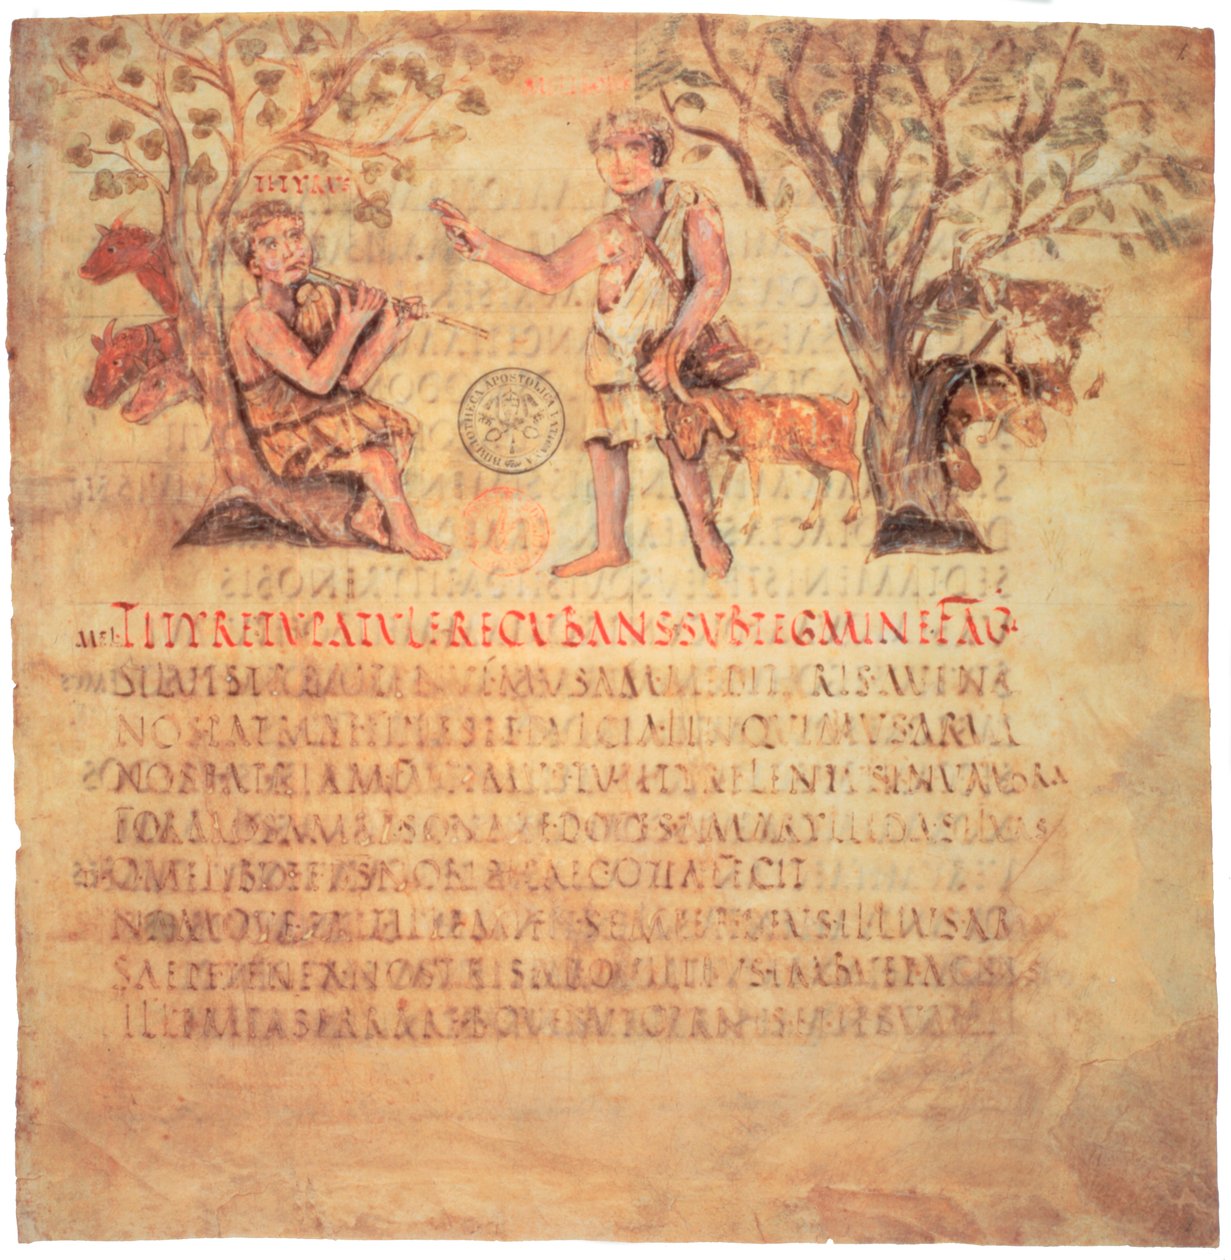 TITYRVS
BIBLIOTHECA APOSTOLICA VATICANA
MEL· TITYRE·TV·PATVLE·RECVBANS·SVB·TEGMINE·FAGI
SILVESTREM·TENVI·MVSAM·MEDITARIS·AVENA
NOS·PATRIAE·ET·DVLCIA·LINQVIMVS·ARVA
NOS·PATRIAM·FVGIMVS·TV·TITYRE·LENTVS·IN·VMBRA
FORMOSAM·RESONARE·DOCES·AMARYLLIDA·SILVAS
O·MELIBOEE·DEVS·NOBIS·HAEC·OTIA·FECIT
NAMQVE·ERIT·ILLE·MIHI·SEMPER·DEVS·ILLIVS·AR
SAEPE·TENER·NOSTRIS·AB·OVILIBVS·IMBVET·AGNVS
ILLE·MEAS·ERRARE·BOVES·VT·CERNIS·ET